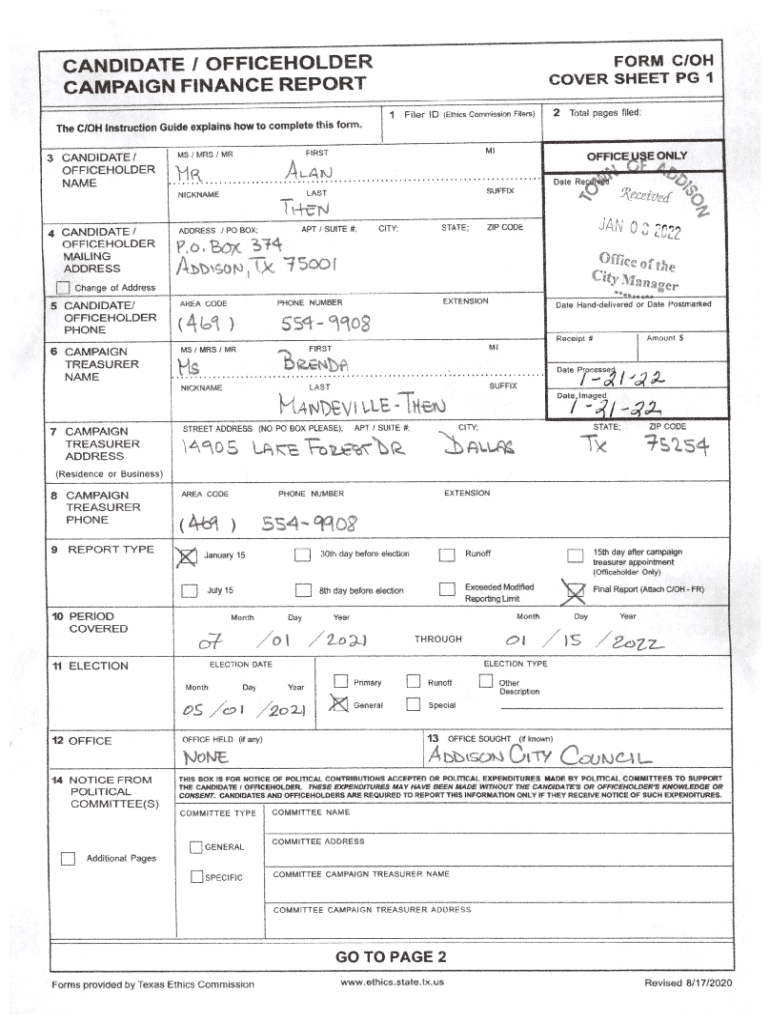 CANDIDATE / OFFICEHOLDER
CAMPAIGN FINANCE REPORT
FORM C/OH
COVER SHEET PG 1
The C/OH Instruction Guide explains how to complete this form.
1 Filer ID (Ethics Commission Filers)
2 Total pages filed:
3 CANDIDATE / OFFICEHOLDER NAME
MS / MRS / MR FIRST MI
MR ALAN
NICKNAME LAST SUFFIX
THEN
OFFICE USE ONLY
Date Received
TOWN OF ADDISON
Received
JAN 03 2022
Office of the
City Manager
Date Hand-delivered or Date Postmarked
Receipt # Amount $
Date Processed
1-21-22
Date Imaged
1-21-22
4 CANDIDATE / OFFICEHOLDER MAILING ADDRESS
Change of Address
ADDRESS / PO BOX; APT / SUITE #; CITY; STATE; ZIP CODE
P.O. BOX 374
ADDISON, TX 75001
5 CANDIDATE/ OFFICEHOLDER PHONE
AREA CODE PHONE NUMBER EXTENSION
(469) 554-9908
6 CAMPAIGN TREASURER NAME
MS / MRS / MR FIRST MI
MS BRENDA
NICKNAME LAST SUFFIX
MANDEVILLE-THEN
7 CAMPAIGN TREASURER ADDRESS
(Residence or Business)
STREET ADDRESS (NO PO BOX PLEASE); APT / SUITE #; CITY; STATE; ZIP CODE
14905 LAKE FOREST DR DALLAS TX 75254
8 CAMPAIGN TREASURER PHONE
AREA CODE PHONE NUMBER EXTENSION
(469) 554-9908
9 REPORT TYPE
January 15 30th day before election Runoff 15th day after campaign treasurer appointment (Officeholder Only)
July 15 8th day before election Exceeded Modified Reporting Limit Final Report (Attach C/OH - FR)
10 PERIOD COVERED
Month Day Year Month Day Year
07 / 01 / 2021 THROUGH 01 / 15 / 2022
11 ELECTION
ELECTION DATE
Month Day Year
05 / 01 / 2021
ELECTION TYPE
Primary Runoff Other Description
General Special
12 OFFICE
OFFICE HELD (if any)
NONE
13 OFFICE SOUGHT (if known)
ADDISON CITY COUNCIL
14 NOTICE FROM POLITICAL COMMITTEE(S)
Additional Pages
THIS BOX IS FOR NOTICE OF POLITICAL CONTRIBUTIONS ACCEPTED OR POLITICAL EXPENDITURES MADE BY POLITICAL COMMITTEES TO SUPPORT
THE CANDIDATE / OFFICEHOLDER. THESE EXPENDITURES MAY HAVE BEEN MADE WITHOUT THE CANDIDATE'S OR OFFICEHOLDER'S KNOWLEDGE OR
CONSENT. CANDIDATES AND OFFICEHOLDERS ARE REQUIRED TO REPORT THIS INFORMATION ONLY IF THEY RECEIVE NOTICE OF SUCH EXPENDITURES.
COMMITTEE TYPE
GENERAL
SPECIFIC
COMMITTEE NAME
COMMITTEE ADDRESS
COMMITTEE CAMPAIGN TREASURER NAME
COMMITTEE CAMPAIGN TREASURER ADDRESS
GO TO PAGE 2
Forms provided by Texas Ethics Commission www.ethics.state.tx.us Revised 8/17/2020